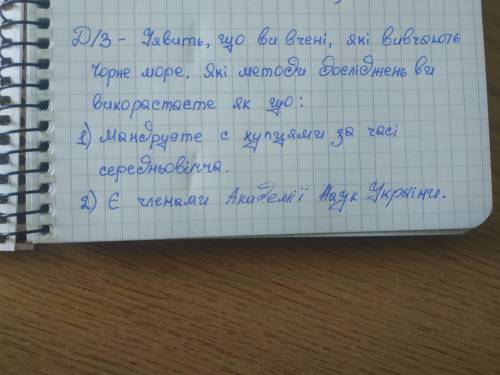 Д/З - Уявить, що ви вчені, які вивчають
Чорне море. Які методи досліджень ви
використаєте як що:
1) Мандруєте с купцями за часі
середньовіччя.
2) Є членами Академії Наук України.